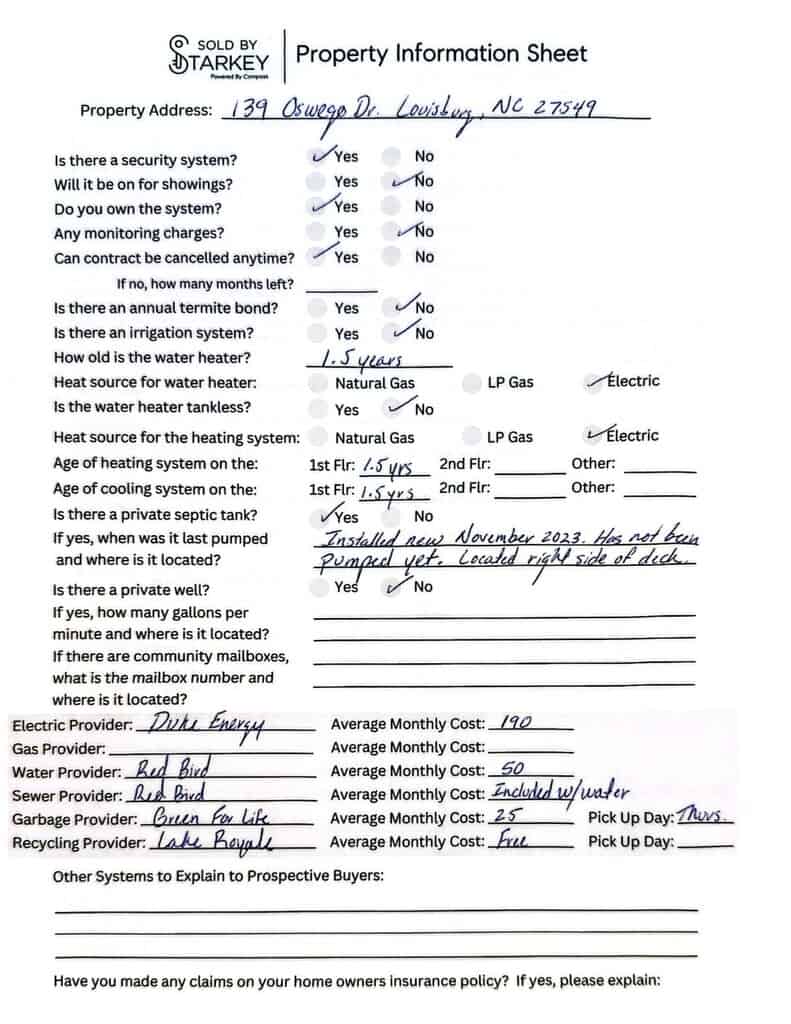 SOLD BY
STARKEY
Powered By Compass
Property Information Sheet
Property Address: 139 Oswego Dr. Louisburg, NC 27549
Is there a security system? ✓ Yes No
Will it be on for showings? Yes ✓ No
Do you own the system? ✓ Yes No
Any monitoring charges? Yes ✓ No
Can contract be cancelled anytime? ✓ Yes No
If no, how many months left?
Is there an annual termite bond? Yes ✓ No
Is there an irrigation system? Yes ✓ No
How old is the water heater? 1.5 years
Heat source for water heater: Natural Gas LP Gas ✓ Electric
Is the water heater tankless? Yes ✓ No
Heat source for the heating system: Natural Gas LP Gas ✓ Electric
Age of heating system on the: 1st Flr: 1.5 yrs 2nd Flr: Other:
Age of cooling system on the: 1st Flr: 1.5 yrs 2nd Flr: Other:
Is there a private septic tank? ✓ Yes No
If yes, when was it last pumped Installed new November 2023. Has not been
and where is it located? pumped yet. Located right side of deck.
Is there a private well? Yes ✓ No
If yes, how many gallons per
minute and where is it located?
If there are community mailboxes,
what is the mailbox number and
where is it located?
Electric Provider: Duke Energy Average Monthly Cost: 190
Gas Provider: Average Monthly Cost:
Water Provider: Red Bird Average Monthly Cost: 50
Sewer Provider: Red Bird Average Monthly Cost: Included w/water
Garbage Provider: Green For Life Average Monthly Cost: 25 Pick Up Day: Thurs.
Recycling Provider: Lake Royale Average Monthly Cost: Free Pick Up Day:
Other Systems to Explain to Prospective Buyers:
Have you made any claims on your home owners insurance policy? If yes, please explain: